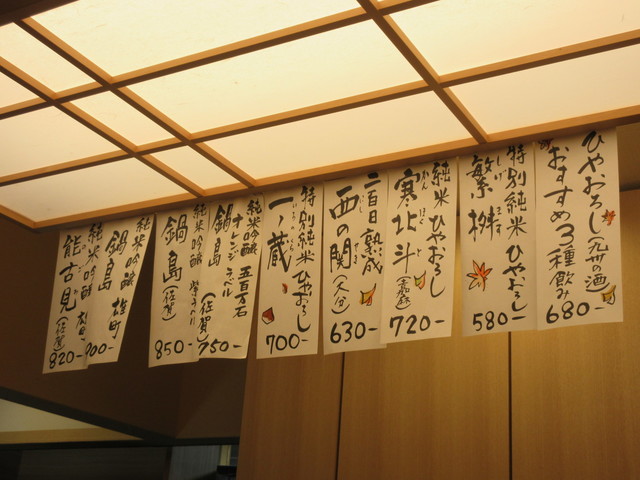 ひやおろし(九州の酒)
おすすめ3種飲み
680-
特別純米 ひやおろし
繁桝
しげ ます
580-
純米 ひやおろし
寒北斗(嘉穂)
かん ほく と
720-
二百日熟成
西の関(大分)
630-
特別純米 ひやおろし
一ノ蔵
700-
純米吟醸 五百万石
オレンジラベル
鍋島(佐賀)
750-
純米吟醸
鍋島(佐賀)
850-
純米吟醸 雄町
鍋島
900-
純米吟醸
能古見(佐賀)
820-